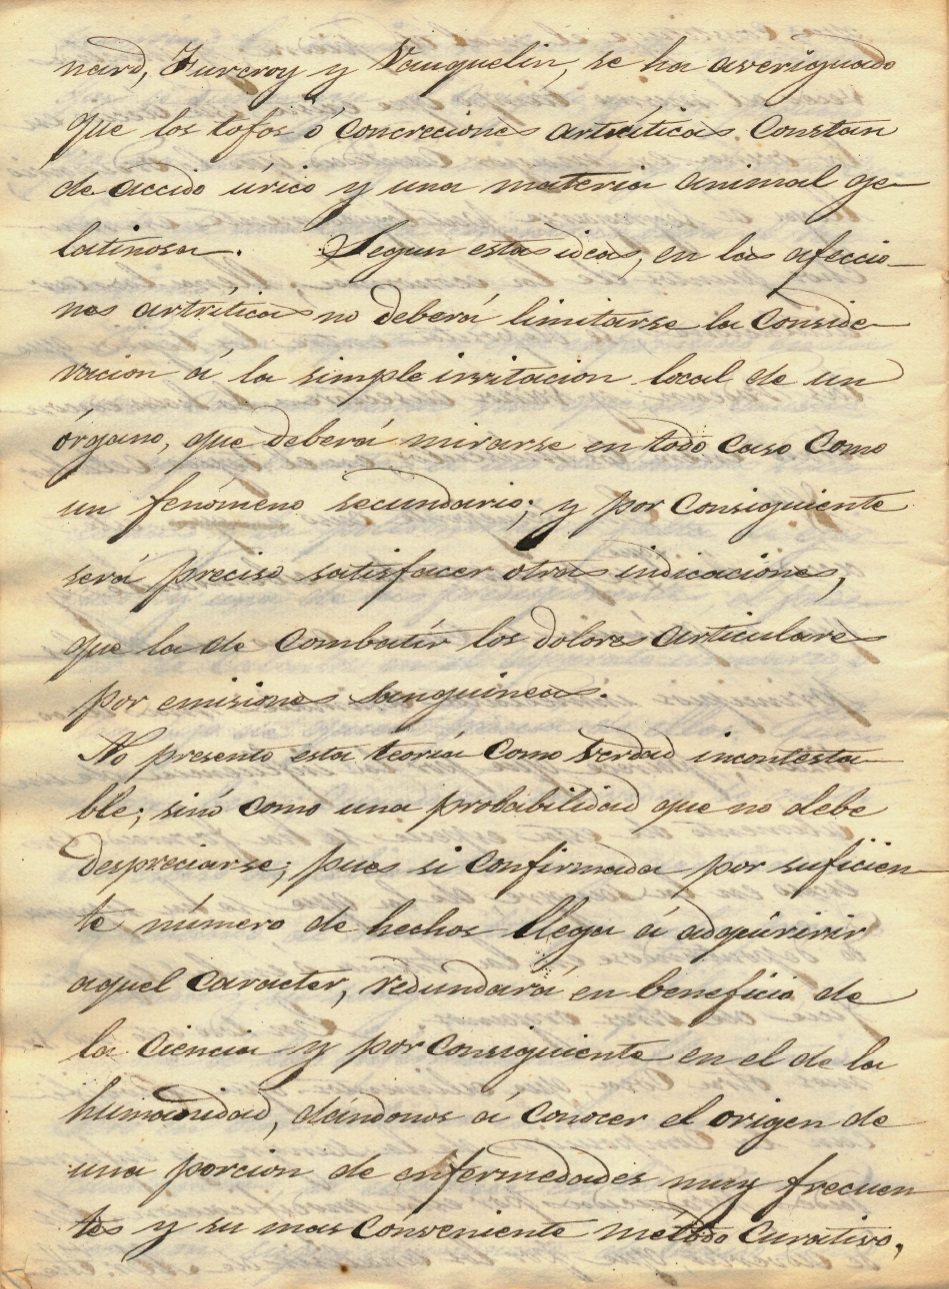 nard, Furcroy y Vauquelin, se ha averiguado
que los tofos ó concreciones artríticas constan
de accido úrico y una materia animal ge-
latinosa. Segun estas ideas, en las afeccio-
nes artríticas no deberá limitarse la conside-
racion á la simple irritacion local de un
órgano, que deberá mirarse en todo caso como
un fenómeno secundario; y por consiguiente
será preciso satisfacer otras indicaciones,
que la de combatir los dolores articulares
por emisiones sanguineas.
No presento esta teoría como verdad incontesta-
ble; sinó como una probabilidad que no debe
despreciarse; pues si confirmada por suficien-
te número de hechos llega á adquiririr
aquel caracter, redundará en beneficio de
la ciencia y por consiguiente en el de la
humanidad, dándonos á conocer el origen de
una porcion de enfermedades muy frecuen-
tes y su mas conveniente método curativo,